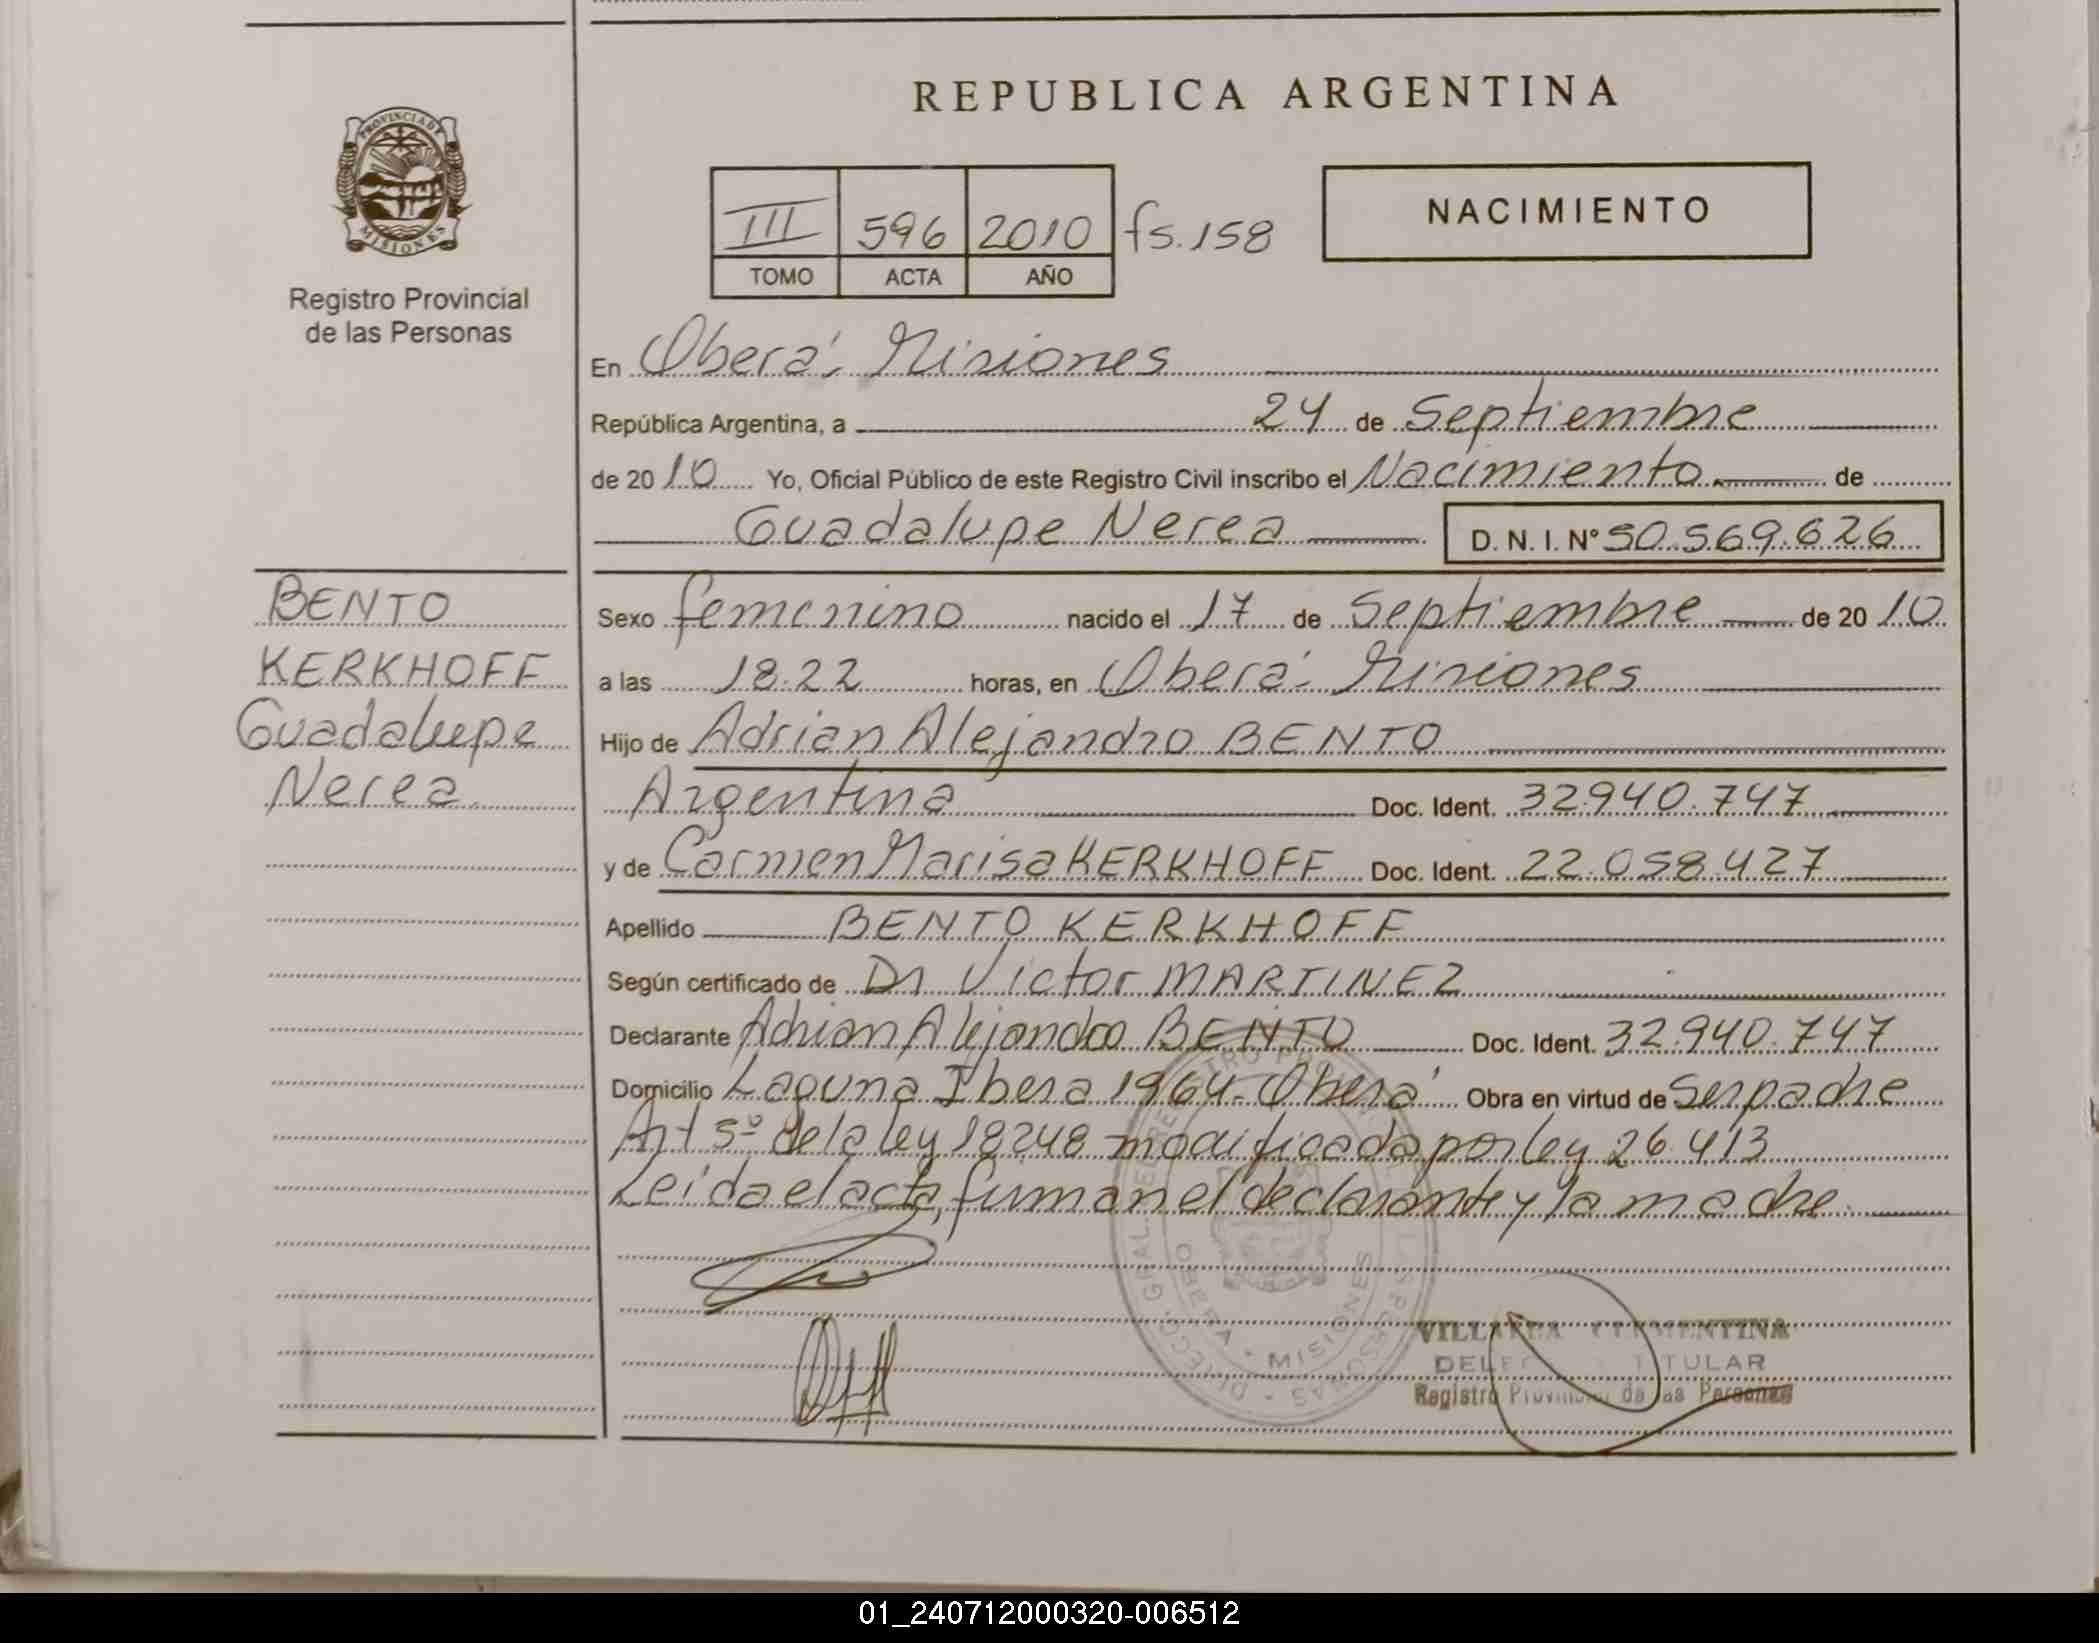 REPUBLICA ARGENTINA
PROVINCIA DE
MISIONES
Registro Provincial
de las Personas
III 596 2010 fs.158
TOMO ACTA AÑO
NACIMIENTO
En Oberá; Misiones
República Argentina, a 24 de Septiembre
de 2010 Yo, Oficial Público de este Registro Civil inscribo el Nacimiento de
Guadalupe Nerea D. N. I. Nº 50.569.626
BENTO
KERKHOFF
Guadalupe
Nerea
Sexo femenino nacido el 17 de Septiembre de 2010
a las 18.22 horas, en Oberá; Misiones
Hijo de Adrian Alejandro BENTO
Argentina Doc. Ident. 32.940.747
y de Carmen Marisa KERKHOFF Doc. Ident. 22.058.427
Apellido BENTO KERKHOFF
Según certificado de Dr Victor MARTINEZ
Declarante Adrian Alejandro BENTO Doc. Ident. 32.940.747
Domicilio Laguna Ibera 1964-Oberá Obra en virtud de Ser padre
Art 5º de la ley 18248 modificada por ley 26.413
Leida el acta, firman el declarante y la madre.
OBERA - MISIONES
CLEMENTINA
TITULAR
Registro Provincial de las Personas
01_240712000320-006512